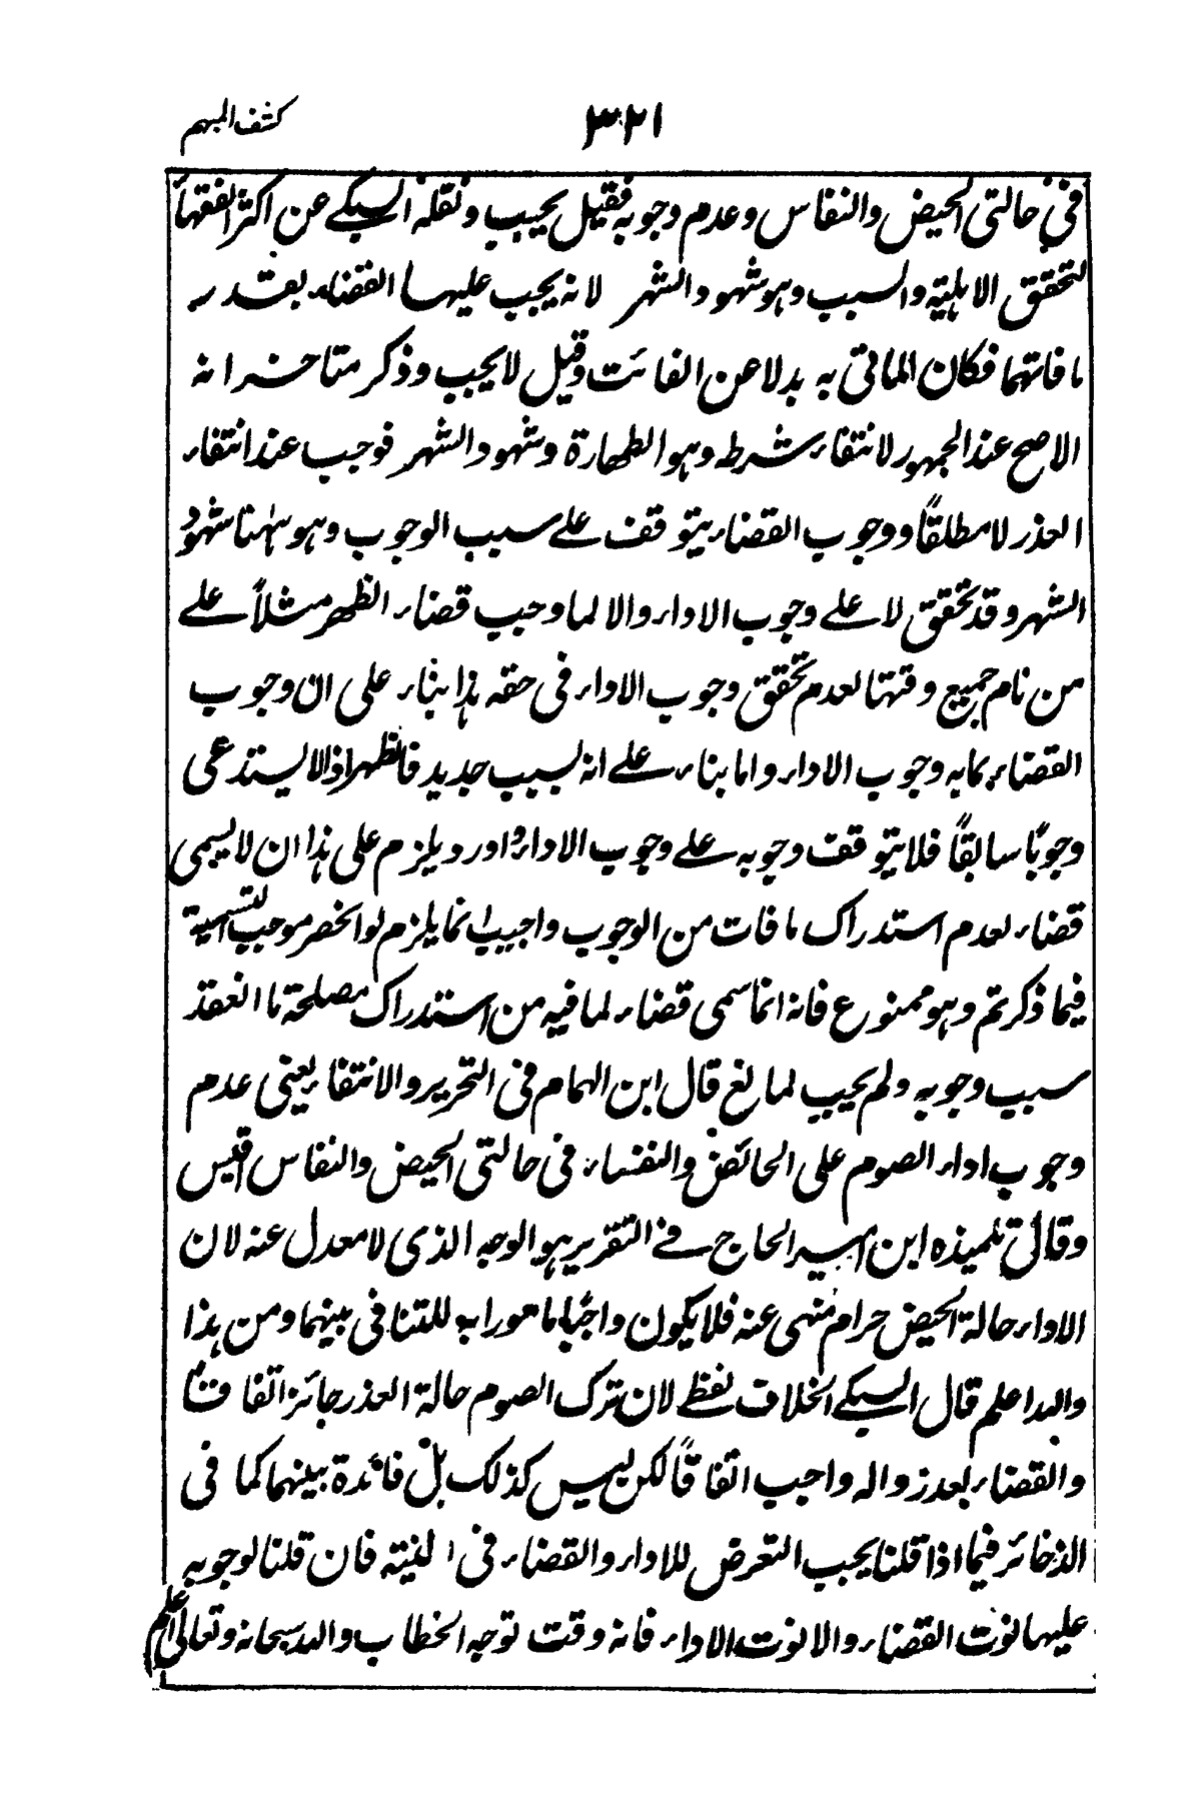 كشف المبهم
٣٢١
في حالتي الحيض والنفاس وعدم وجوبه فقيل يجب ونقله السبكي عن اكثر الفقهاء
لتحقق الاهلية والسبب وهو شهود الشهر لانه يجب عليهما القضاء بقدر
ما فاتهما فكان الماتي به بدلا عن الفائت وقيل لا يجب وذكر متاخر انه
الاصح عند الجمهور لانتفاء شرطه وهو الطهارة وشهود الشهر فوجب عند انتفاء
العذر لا مطلقاً ووجوب القضاء يتوقف على سبب الوجوب وهو ههنا شهود
الشهر وقد تحقق لا على وجوب الاداء والا لما وجب قضاء الظهر مثلاً على
من نام جميع وقتها لعدم تحقق وجوب الاداء في حقه هذا بناء على ان وجوب
القضاء بما به وجوب الاداء واما بناء على انه لسبب جديد فالظهر اذ لا يستدعى
وجوبًا سابقاً فلا يتوقف وجوبه على وجوب الاداء واورد ويلزم على هذا ان لا يسمى
قضاء لعدم استدراك ما فات من الوجوب واجيب انما يلزم لو انحصر موجب التسمية
فيما ذكرتم وهو ممنوع فانه انما سمى قضاء لما فيه من استدراك مصلحة ما انعقد
سبب وجوبه ولم يجب لمانع قال ابن الهمام في التحرير والانتفاء يعنى عدم
وجوب اداء الصوم على الحائض والنفساء في حالتي الحيض والنفاس اقيس
وقال تلميذه ابن امير الحاج في التقرير هو الوجه الذى لا معدل عنه لان
الاداء حالة الحيض حرام منهى عنه فلا يكون واجبًا مامورا به للتنافى بينهما ومن هذا
والله اعلم قال السبكي الخلاف لفظي لان ترك الصوم حالة العذر جائز اتفاقاً
والقضاء بعد زواله واجب اتفاقاً لكن ليس كذلك بل فائدة بينهما كما في
الذخائر فيما اذا قلنا يجب التعرض للاداء والقضاء في النية فان قلنا لوجوبه
عليها نوت القضاء والا نوت الاداء فانه وقت توجه الخطاب والله سبحانه وتعالى اعلم